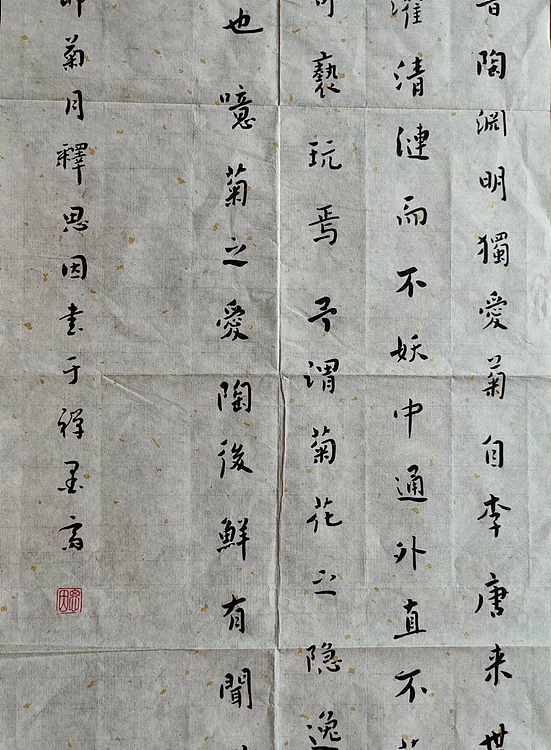 陶渊明獨愛菊自李唐来世
濯清漣而不妖中通外直不
可褻玩焉予謂菊花之隐逸
也噫菊之愛陶後鮮有聞
菊月釋思因書于禪墨齋